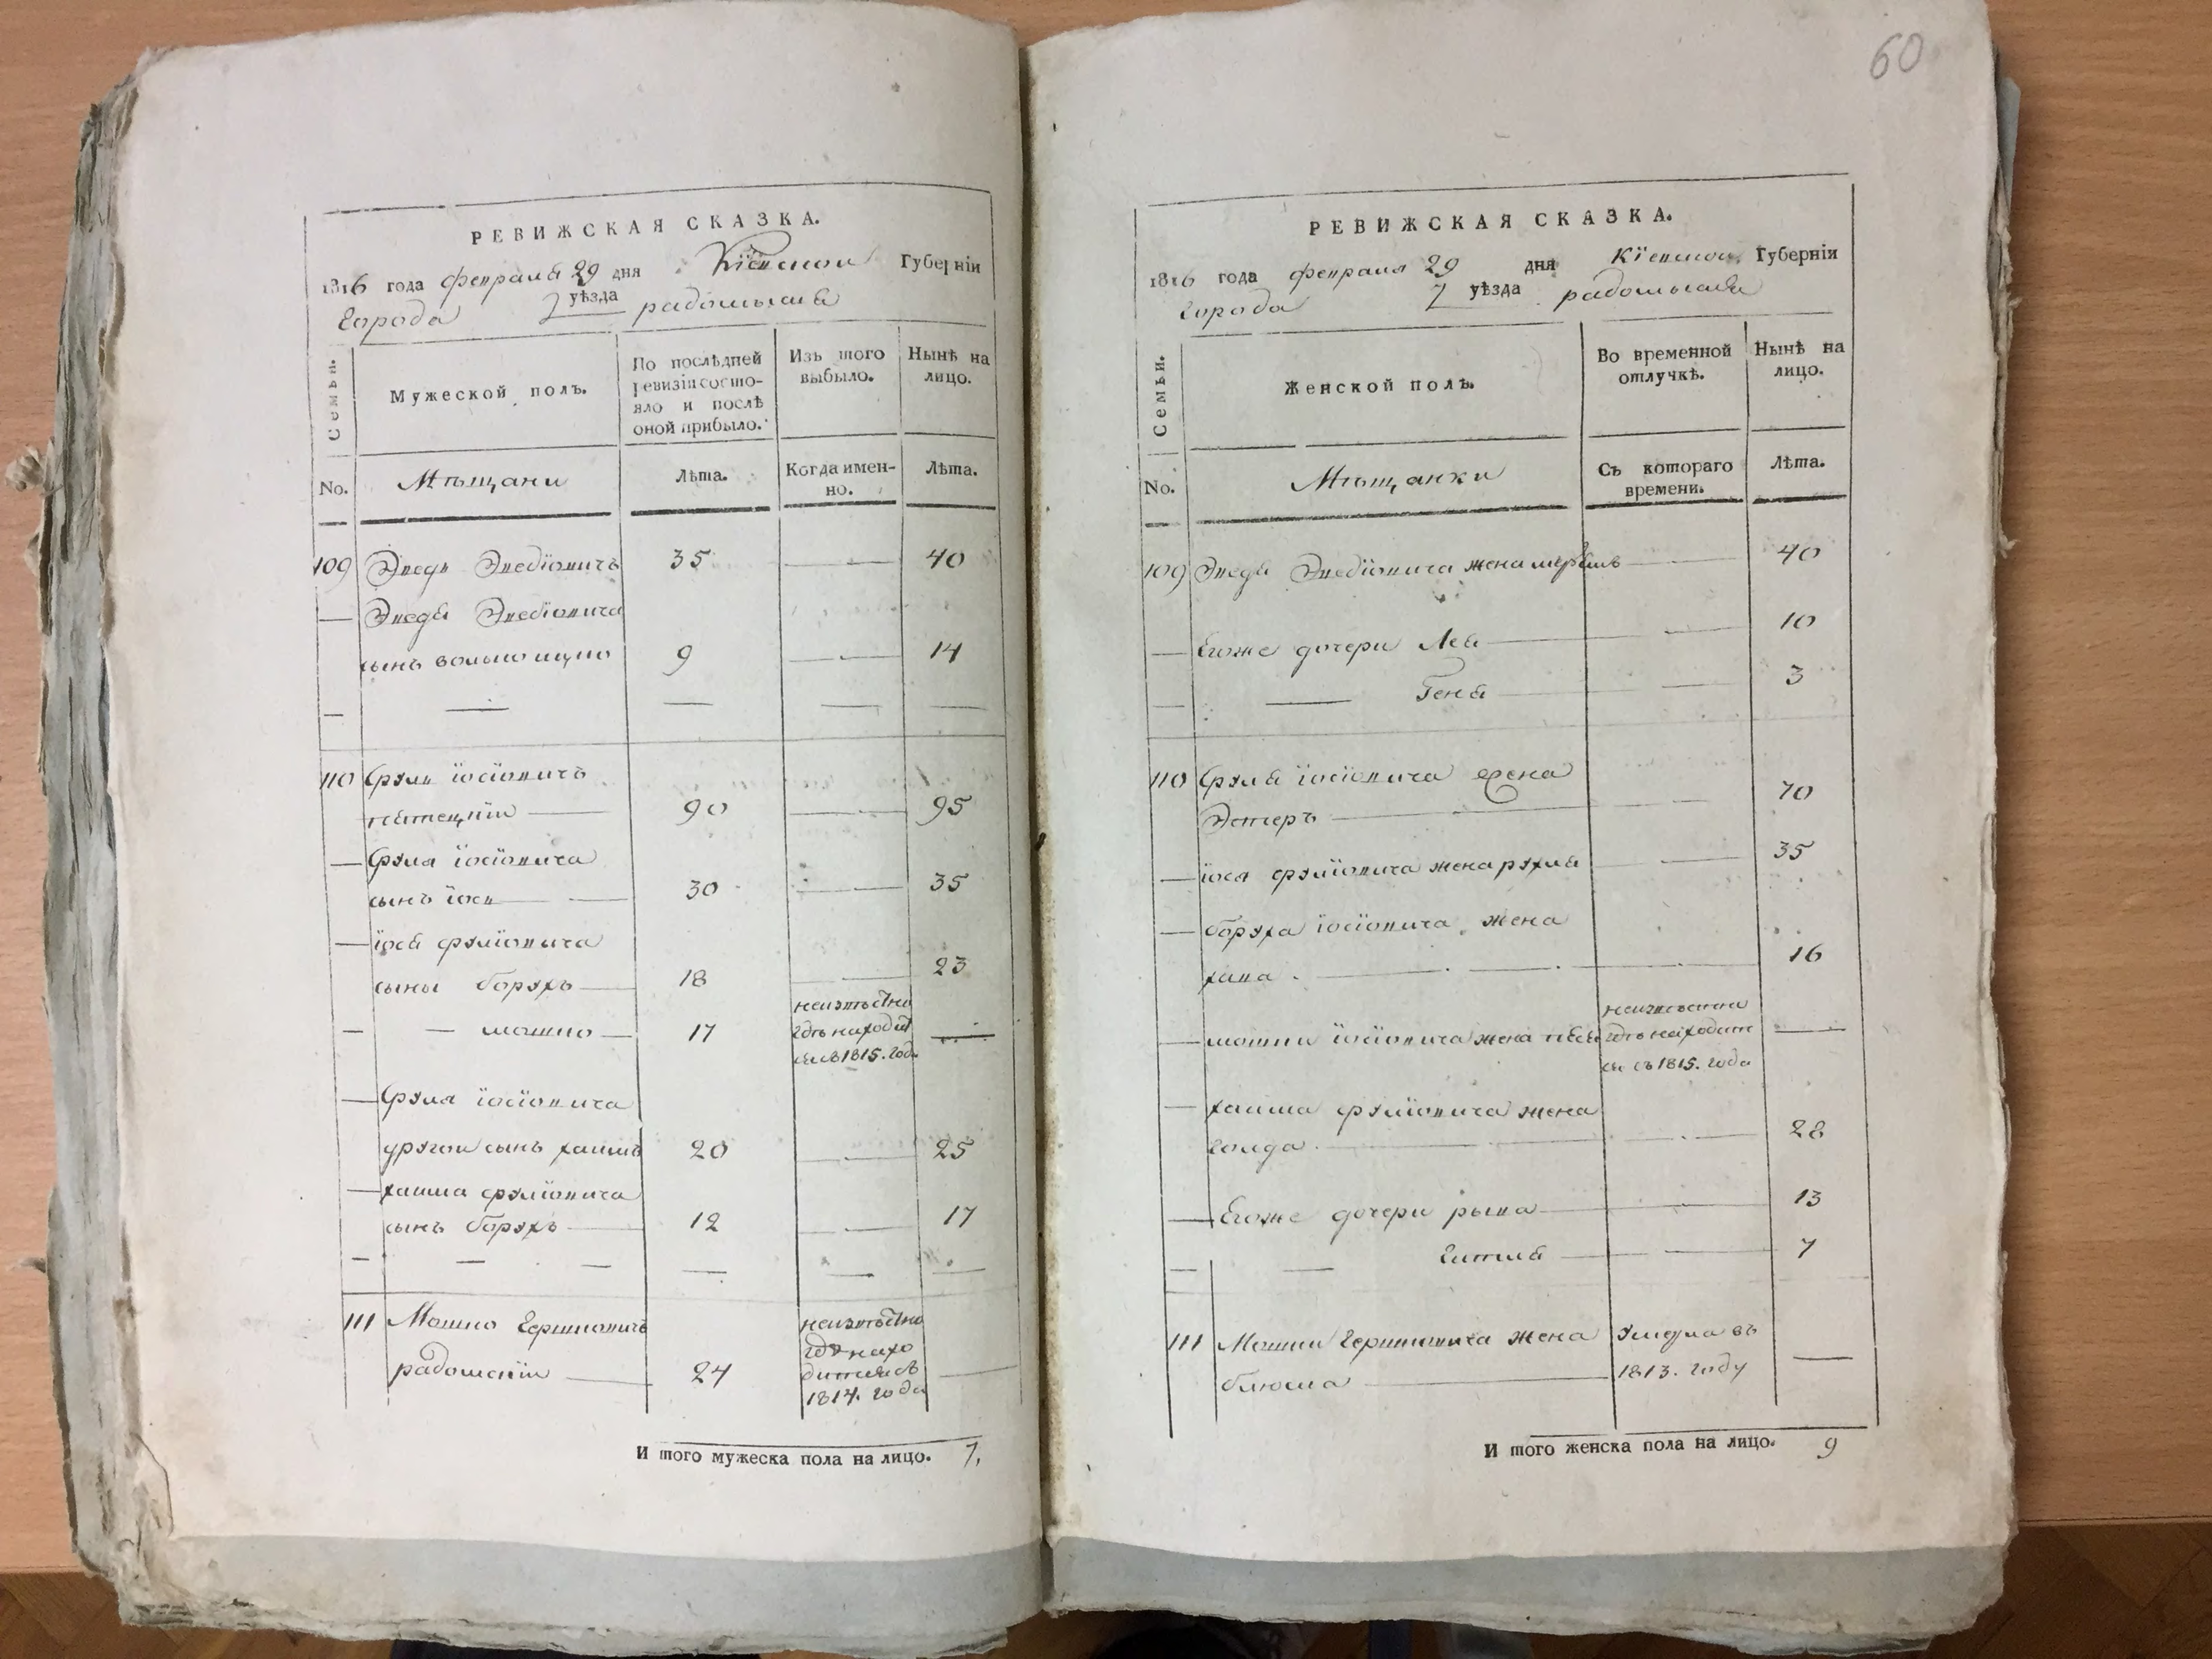 60
РЕВИЖСКАЯ СКАЗКА.
1816 года февраля 29 дня Кіевской Губерніи
города уѣзда радомысля
Семьи.
Мужеской полъ.
По послѣдней ревизіи состояло и послѣ оной прибыло.
Изъ того выбыло.
Нынѣ на лицо.
No.
Мѣщани
Лѣта.
Когда имен-
но.
Лѣта.
109 35 — 40
—
сынъ 9 — 14
— — — — —
110 Срулъ іосіовичъ
90 — 95
— Сруля іосіовича
сынъ іось — 30 — 35
— іося сруліовича
сыны борухъ — 18 — 23
— — мошко — 17 неизвѣстно
гдѣ находит
ся съ 1815. года —
— Сруля іосіовича
другой сынъ хаимъ 20 — 25
— хаима сруліовича
сынъ борухъ — 12 — 17
— — — — — —
111 Мошко Гершковичъ
24 неизвѣстно
гдѣ нахо
дится съ
1814. года —
И того мужеска пола на лицо. 7.
РЕВИЖСКАЯ СКАЗКА.
1816 года февраля 29 дня Кіевской Губерніи
города уѣзда радомысля
Семьи.
Женской полъ.
Во временной отлучкѣ.
Нынѣ на лицо.
No.
Мѣщанки
Съ котораго
времени.
Лѣта.
109 жена — 40
— Егоже дочери Лея — — 10
— — Геня — — 3
110 Сруля іосіовича жена
Эстеръ — — 70
— іося сруліовича жена рухля — 35
— боруха іосіовича жена
хава — — 16
— мошки іосіовича жена неизвѣстна
гдѣ находит
ся съ 1815. года —
— хаима сруліовича жена
голда — — 28
— Егоже дочери рыва — — 13
— — Гитля — — 7
111 Мошки Гершковича жена
блюма — умерла въ
1813. году —
И того женска пола на лицо. 9